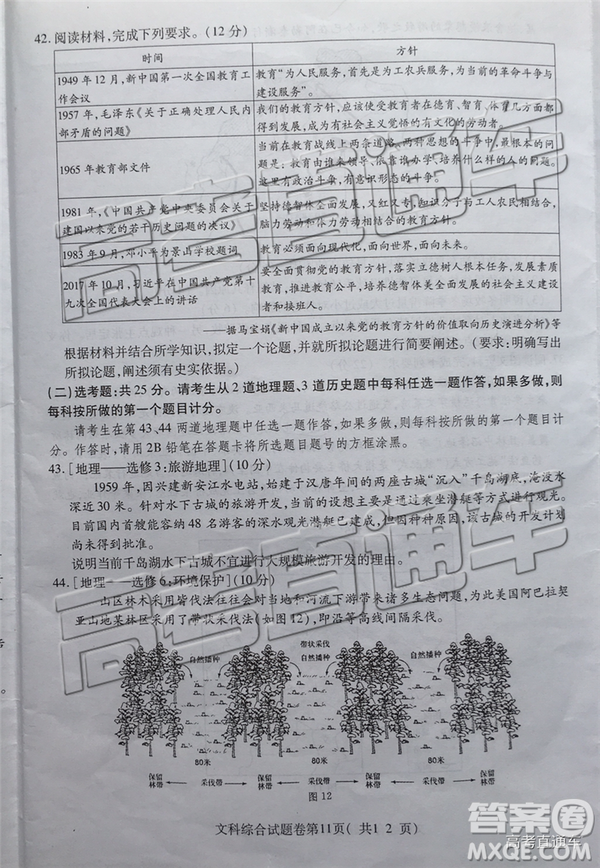 42. 阅读材料,完成下列要求。(12 分)
时间 方针
1949 年 12 月,新中国第一次全国教育工作会议
教育"为人民服务,首先是为工农兵服务,为当前的革命斗争与建设服务"。
1957 年,毛泽东《关于正确处理人民内部矛盾的问题》
我们的教育方针,应该使受教育者在德育、智育、体育几方面都得到发展,成为有社会主义觉悟的有文化的劳动者。
1965 年教育部文件
当前在教育战线上两条道路、两种思想的斗争中,最根本的问题是:教育由谁来领导、依靠谁办学、培养什么样的人的问题。这里有政治斗争,有意识形态的斗争。
1981 年,《中国共产党中央委员会关于建国以来党的若干历史问题的决议》
坚持德智体全面发展、又红又专、知识分子与工人农民相结合,脑力劳动和体力劳动相结合的教育方针。
1983 年 9 月,邓小平为景山学校题词
教育必须面向现代化,面向世界,面向未来。
2017 年 10 月,习近平在中国共产党第十九次全国代表大会上的讲话
要全面贯彻党的教育方针,落实立德树人根本任务,发展素质教育,推进教育公平,培养德智体美全面发展的社会主义建设者和接班人。
——据马宝娟《新中国成立以来党的教育方针的价值取向历史演进分析》等
根据材料并结合所学知识,拟定一个论题,并就所拟论题进行简要阐述。(要求:明确写出
所拟论题,阐述须有史实依据。)
(二)选考题:共 25 分。请考生从 2 道地理题、3 道历史题中每科任选一题作答,如果多做,则
每科按所做的第一个题目计分。
请考生在第 43、44 两道地理题中任选一题作答,如果多做,则每科按所做的第一个题目
计分。作答时,请用 2B 铅笔在答题卡将所选题目题号的方框涂黑。
43. [地理——选修 3:旅游地理](10 分)
1959 年,因兴建新安江水电站,始建于汉唐年间的两座古城"沉入"千岛湖底,淹没水
深近 30 米。针对水下古城的旅游开发,有关部门提出了通过乘坐潜艇等方式进行观光。
目前国内首艘能容纳 48 名游客的深水观光潜艇已建成,但因种种原因,该古城的开发计划
尚未得到批准。
说明当前千岛湖水下古城不宜进行大规模旅游开发的理由。
44. [地理——选修 6:环境保护](10 分)
山区林木采用皆伐法往往会对坡地和河流下游带来诸多生态问题,为此美国阿巴拉契
亚山地某林区采用了带状采伐法(如图 12),即沿等高线间隔采伐。
带状采伐
自然播种 自然播种 自然播种 自然播种
80米 80米 80米
保留林带 采伐带 保留林带 采伐带 保留林带 采伐带 保留林带
图 12
文科综合试题卷第11页( 共1 2 页)
高考直通车
答案圈
高考直通车